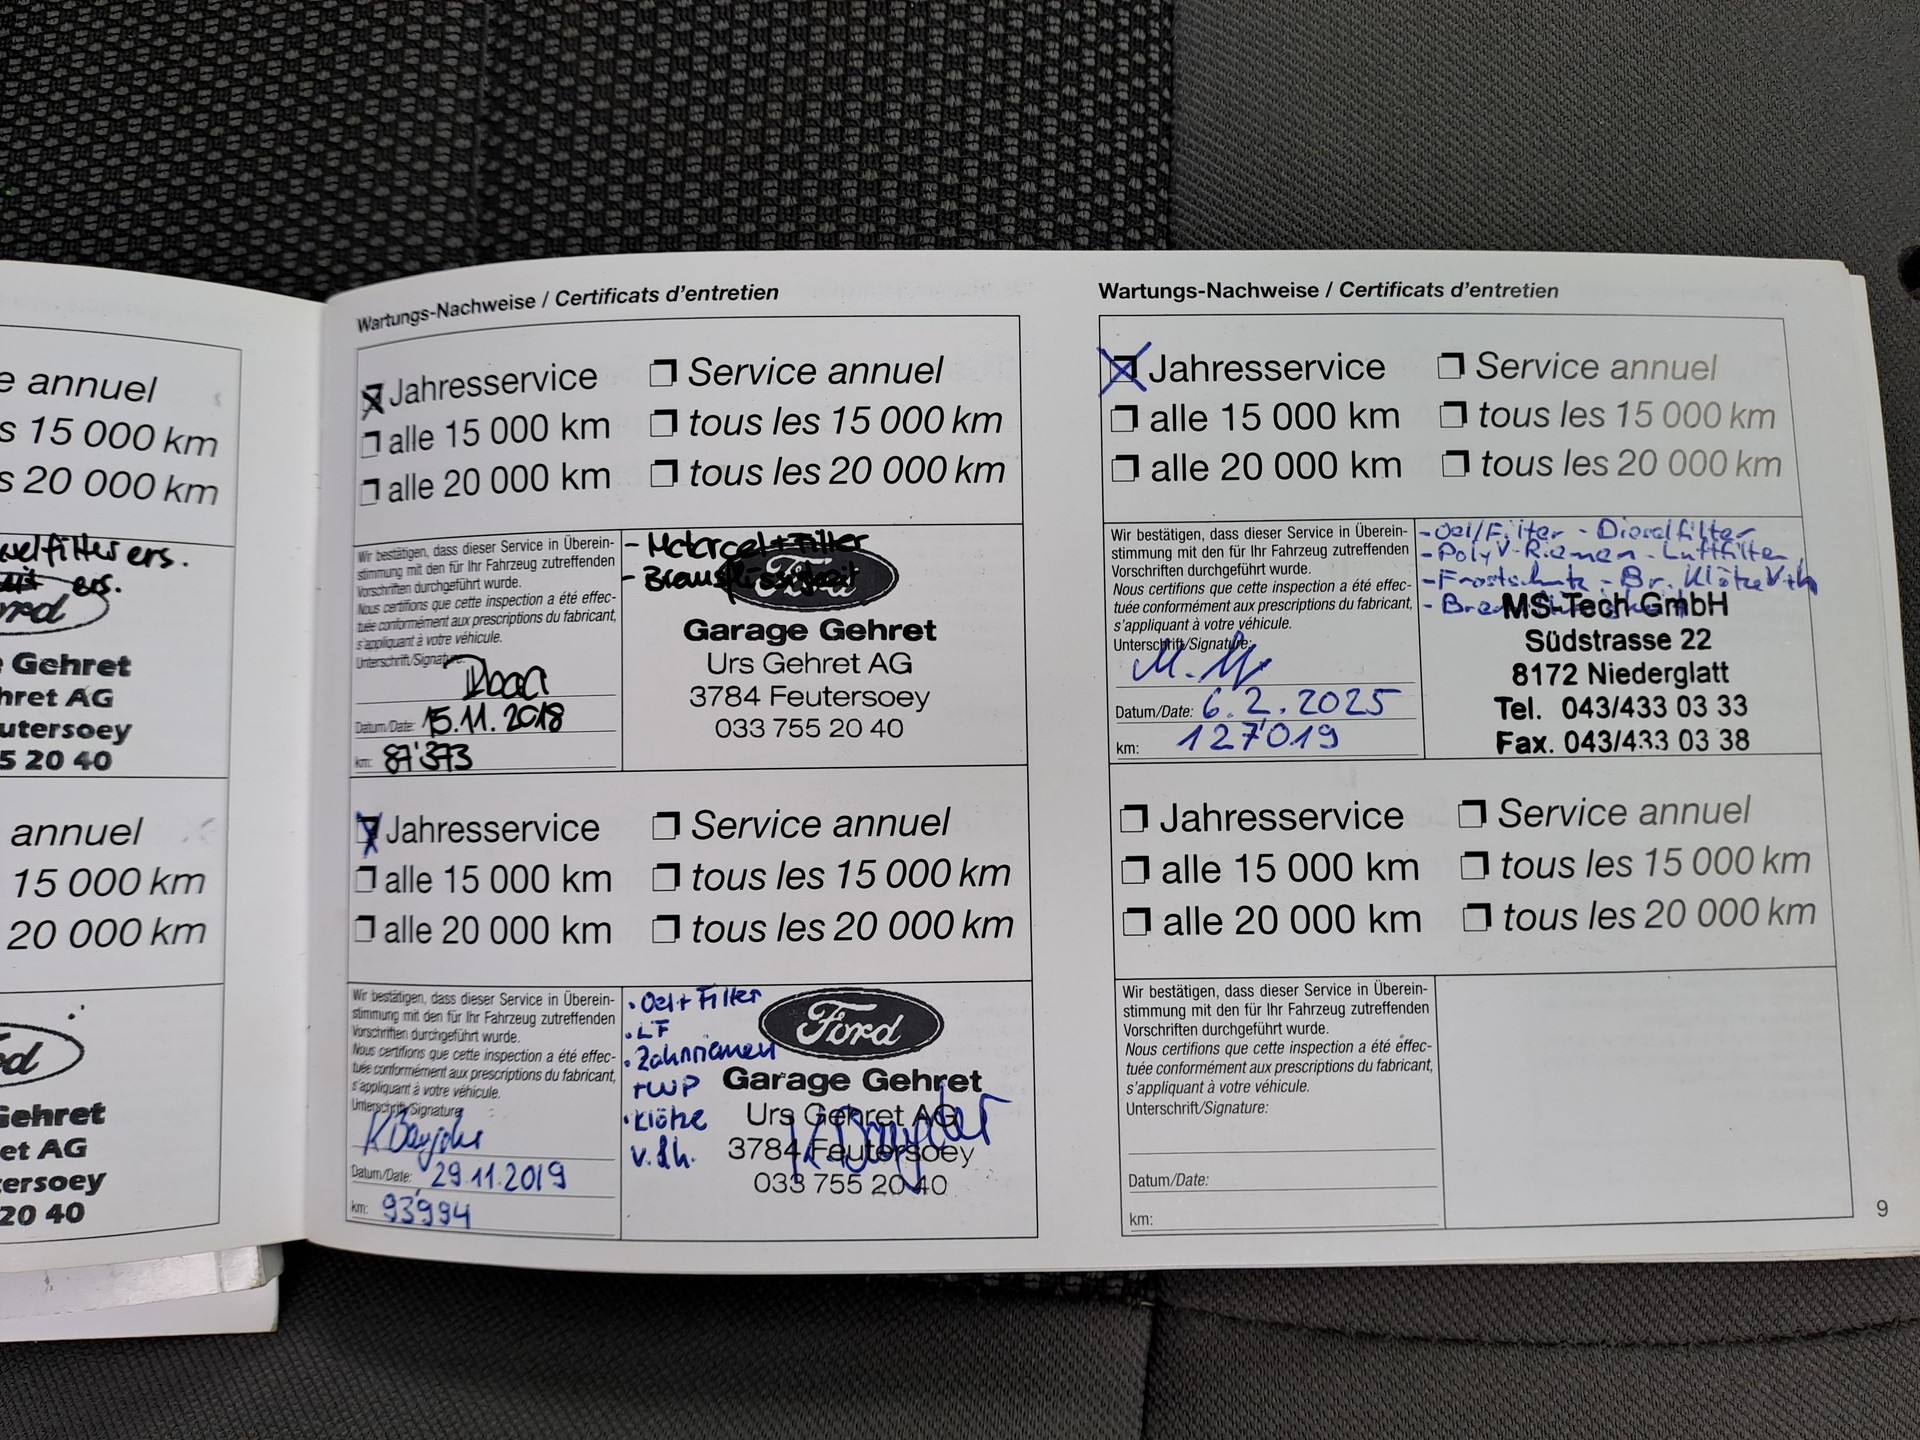 e annuel
s 15 000 km
s 20 000 km
ers.
ers.
Gehret
hret AG
utersoey
5 20 40
annuel
15 000 km
20 000 km
Gehret
et AG
tersoey
20 40
Wartungs-Nachweise / Certificats d'entretien
Jahresservice
Service annuel
alle 15 000 km
tous les 15 000 km
alle 20 000 km
tous les 20 000 km
Wir bestätigen, dass dieser Service in Überein-
stimmung mit den für Ihr Fahrzeug zutreffenden
Vorschriften durchgeführt wurde.
Nous certifions que cette inspection a été effec-
tuée conformément aux prescriptions du fabricant,
s'appliquant à votre véhicule.
Unterschrift/Signature:
Datum/Date: 15.11.2018
km: 87'373
- Motoroel + Filter
- Bremsflüssigkeit
Ford
Garage Gehret
Urs Gehret AG
3784 Feutersoey
033 755 20 40
Jahresservice
Service annuel
alle 15 000 km
tous les 15 000 km
alle 20 000 km
tous les 20 000 km
Wir bestätigen, dass dieser Service in Überein-
stimmung mit den für Ihr Fahrzeug zutreffenden
Vorschriften durchgeführt wurde.
Nous certifions que cette inspection a été effec-
tuée conformément aux prescriptions du fabricant,
s'appliquant à votre véhicule.
Unterschrift/Signature:
Datum/Date: 29.11.2019
km: 93'994
• Oel + Filter
• LF
• Zahnriemen
+WP
• Klötze
v.+h.
Ford
Garage Gehret
Urs Gehret AG
3784 Feutersoey
033 755 20 40
Wartungs-Nachweise / Certificats d'entretien
Jahresservice
Service annuel
alle 15 000 km
tous les 15 000 km
alle 20 000 km
tous les 20 000 km
Wir bestätigen, dass dieser Service in Überein-
stimmung mit den für Ihr Fahrzeug zutreffenden
Vorschriften durchgeführt wurde.
Nous certifions que cette inspection a été effec-
tuée conformément aux prescriptions du fabricant,
s'appliquant à votre véhicule.
Unterschrift/Signature:
Datum/Date: 6.2.2025
km: 127'019
- Oel/Filter - Dieselfilter
- Poly V-Riemen - Luftfilter
- Frostschutz - Br. Klötze V+h
MS-Tech GmbH
Südstrasse 22
8172 Niederglatt
Tel. 043/433 03 33
Fax. 043/433 03 38
Jahresservice
Service annuel
alle 15 000 km
tous les 15 000 km
alle 20 000 km
tous les 20 000 km
Wir bestätigen, dass dieser Service in Überein-
stimmung mit den für Ihr Fahrzeug zutreffenden
Vorschriften durchgeführt wurde.
Nous certifions que cette inspection a été effec-
tuée conformément aux prescriptions du fabricant,
s'appliquant à votre véhicule.
Unterschrift/Signature:
Datum/Date:
km:
9